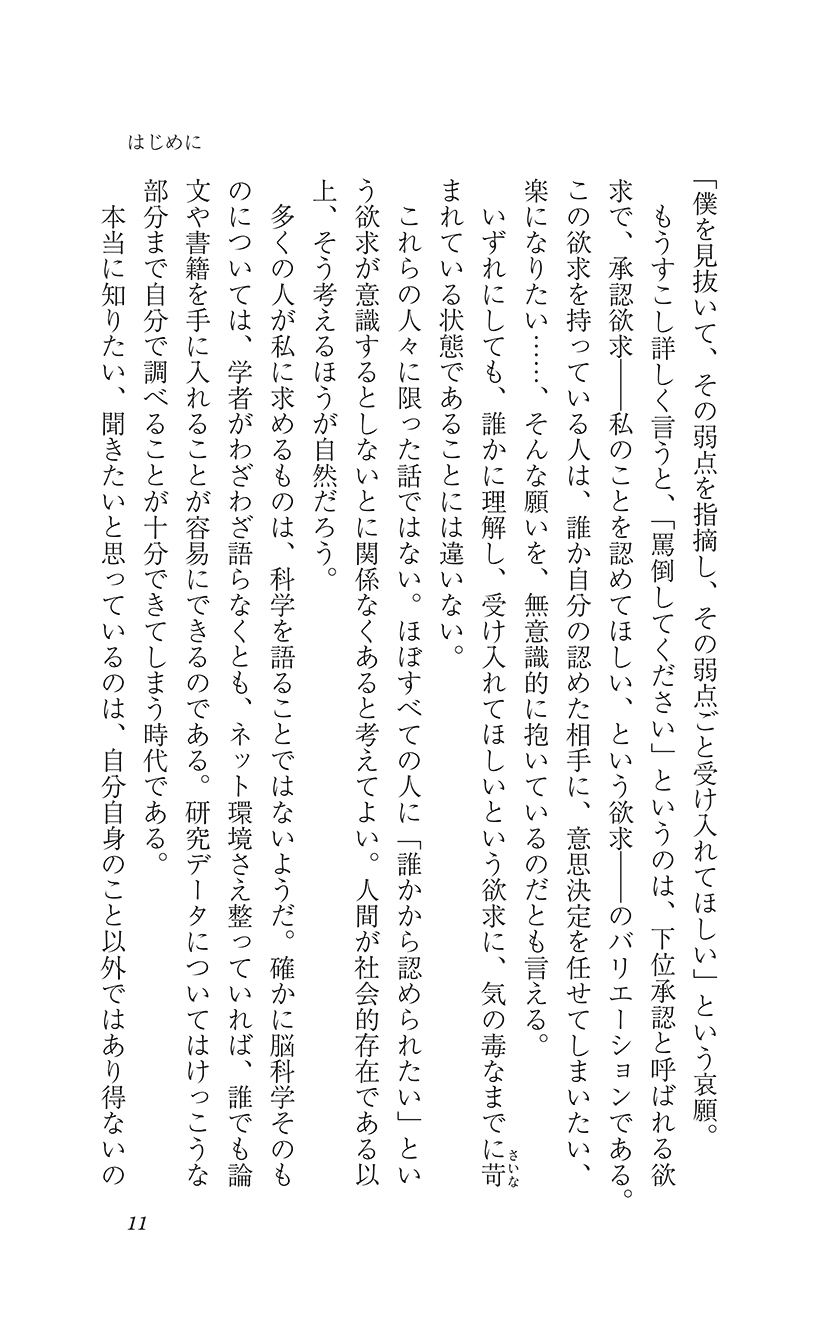 はじめに
「僕を見抜いて、その弱点を指摘し、その弱点ごと受け入れてほしい」という哀願。
もうすこし詳しく言うと、「罵倒してください」というのは、下位承認と呼ばれる欲
求で、承認欲求――私のことを認めてほしい、という欲求――のバリエーションである。
この欲求を持っている人は、誰か自分の認めた相手に、意思決定を任せてしまいたい、
楽になりたい……、そんな願いを、無意識的に抱いているのだとも言える。
いずれにしても、誰かに理解し、受け入れてほしいという欲求に、気の毒なまでに苛
さいな
まれている状態であることには違いない。
これらの人々に限った話ではない。ほぼすべての人に「誰かから認められたい」とい
う欲求が意識するとしないとに関係なくあると考えてよい。人間が社会的存在である以
上、そう考えるほうが自然だろう。
多くの人が私に求めるものは、科学を語ることではないようだ。確かに脳科学そのも
のについては、学者がわざわざ語らなくとも、ネット環境さえ整っていれば、誰でも論
文や書籍を手に入れることが容易にできるのである。研究データについてはけっこうな
部分まで自分で調べることが十分できてしまう時代である。
本当に知りたい、聞きたいと思っているのは、自分自身のこと以外ではあり得ないの
11